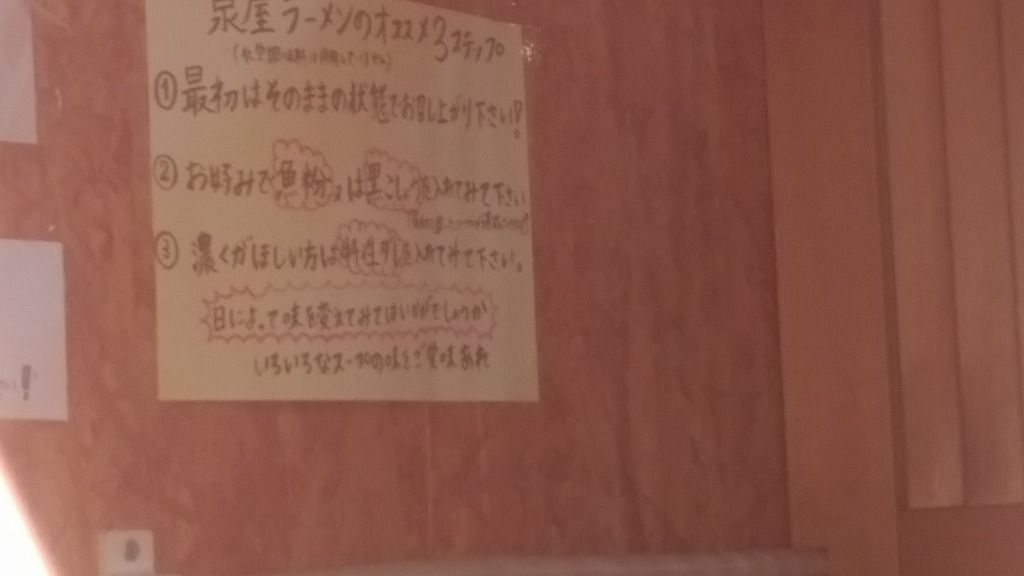 泉屋ラーメンのオススメ3ステップ
(化学調味料は使用していません)
①最初はそのままの状態でお召し上がり下さい!。
②お好みで魚粉又は黒こしょうを入れてみて下さい
③濃くがほしい方は特性ダレを入れてみて下さい。
日によって味を変えてみてはいかがでしょうか
いろいろなスープの味をご賞味あれ